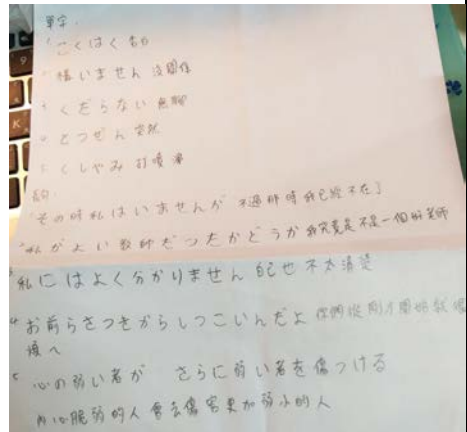 單字:
1 こくはく 告白
2 構いません 沒關係
3 くだらない 無聊
4 とつぜん 突然
5 くしゃみ 打噴嚏
長句:
1 その時私はいませんが 不過那時我已經不在了
2 私がよい教師だつたかどうか 我究竟是不是一個好老師
3 私にはよく分かりません 自己也不太清楚
4 お前らさつきからしつこいんだよ 你們從剛才開始就很
煩へ
5 心の弱い者が さらに弱い者を傷つける
內心脆弱的人會去傷害更加弱小的人